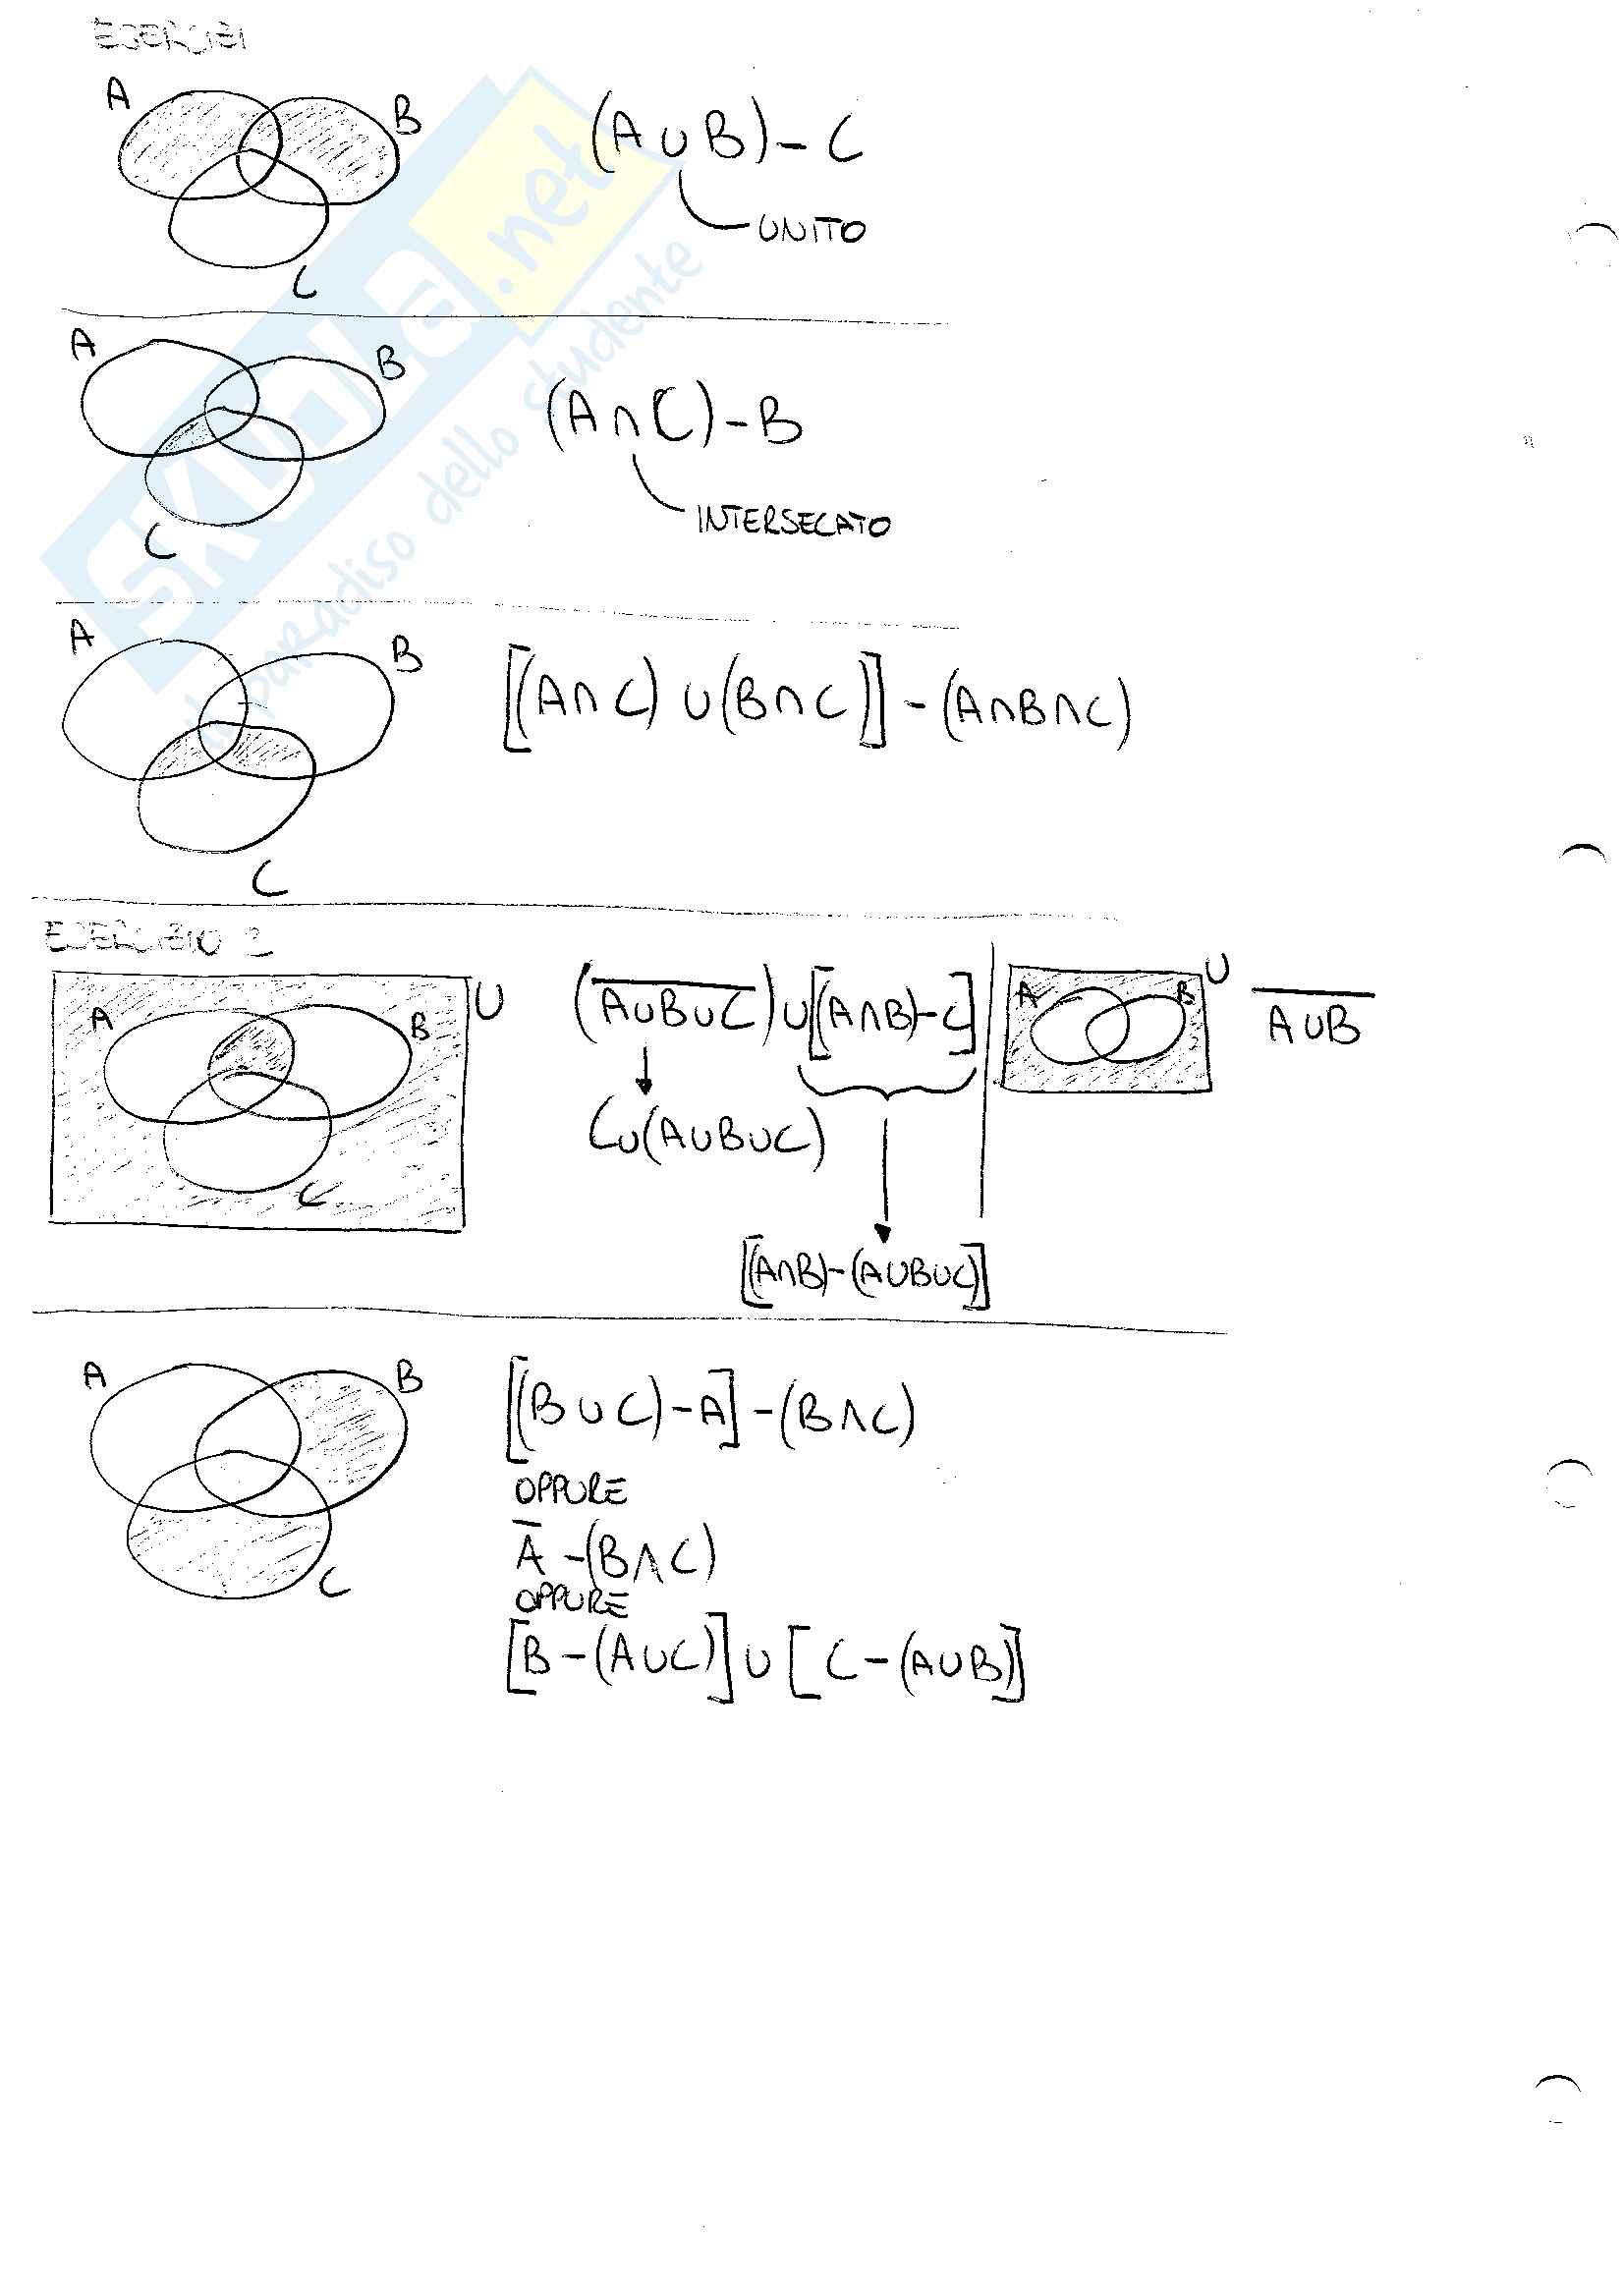 ESERCIZI
A
B
C
(A∪B)-C
UNITO
A
B
C
(A∩C)-B
INTERSECATO
A
B
C
[(A∩C)∪(B∩C)]-(A∩B∩C)
ESERCIZIO 2
A
B
C
U
(A̅∪̅B̅∪̅C̅)∪[(A∩B)-C]
C∪(A∪B∪C)
[(A∩B)-(A∪B∪C)]
A
B
U
A̅∪̅B̅
A
B
C
[(B∪C)-A]-(B∩C)
OPPURE
A̅-(B∩C)
OPPURE
[B-(A∪C)]∪[C-(A∪B)]
SKUOLA.net
il paradiso dello studente